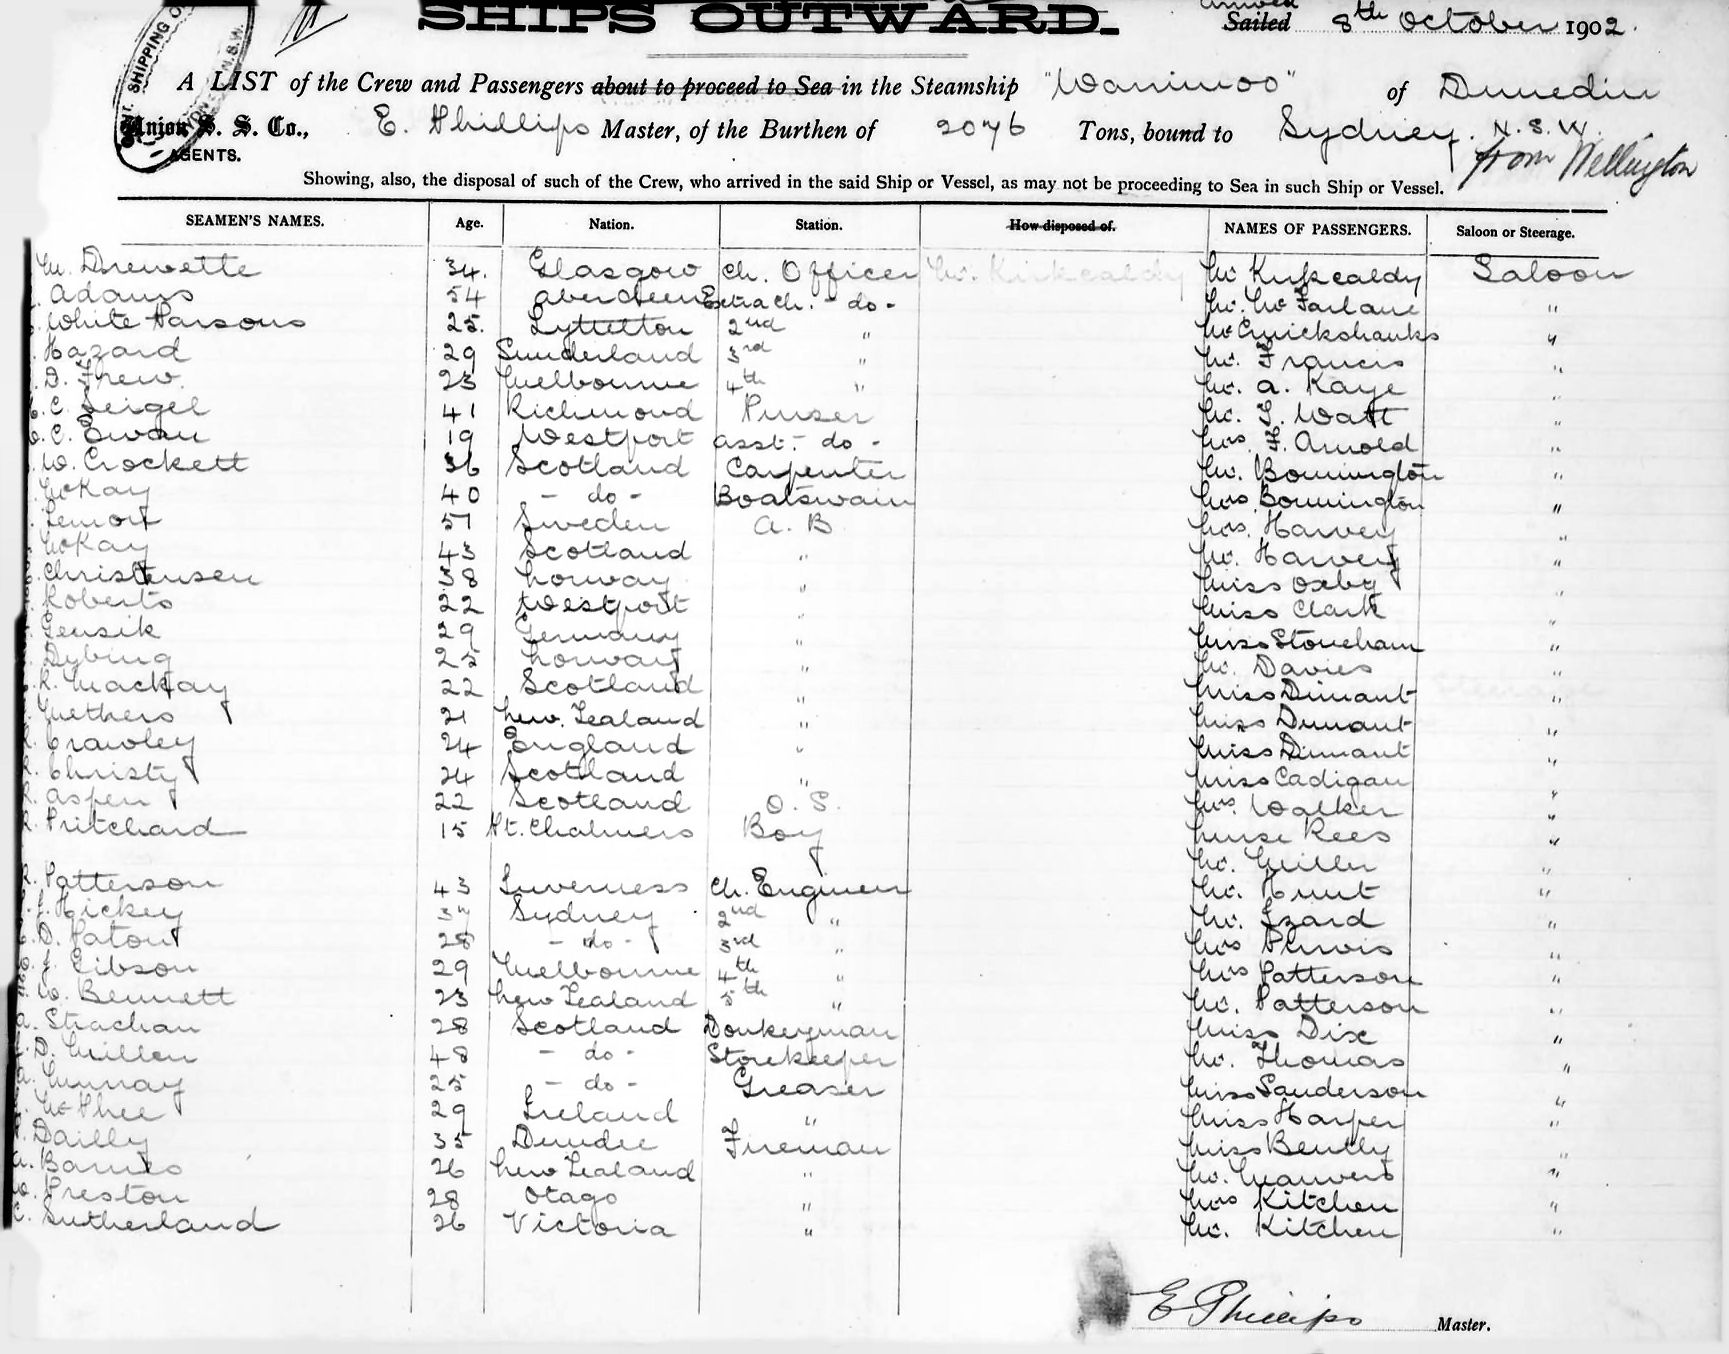 SHIPS OUTWARD.
arrived
Sailed 8th October 1902.
A LIST of the Crew and Passengers about to proceed to Sea in the Steamship "Warrimoo" of Dunedin
Union S. S. Co., E. Phillips Master, of the Burthen of 2076 Tons, bound to Sydney. N. S. W.
AGENTS.
from Wellington
Showing, also, the disposal of such of the Crew, who arrived in the said Ship or Vessel, as may not be proceeding to Sea in such Ship or Vessel.
SEAMEN'S NAMES. Age. Nation. Station. How disposed of. NAMES OF PASSENGERS. Saloon or Steerage.
Drewette 34. Glasgow Ch. Officer Mr. Kirkcaldy Mr Kirkcaldy Saloon
Adams 54 Aberdeen Extra Ch. - do - Mr. McFarlane "
White Parsons 25. Lyttelton 2nd " Mr Cruickshanks "
Hazard 29 Sunderland 3rd " Mr. Francis "
D. Frew. 23 Melbourne 4th " Mr. A. Kaye "
C. Seigel 41 Richmond Purser Mr. Watt "
C. Ewan 19 Westport Asst. - do - Mrs. Arnold "
W. Crockett 36 Scotland Carpenter Mr. Bonnington "
McKay 40 - do - Boatswain Mrs Bonnington "
Lemon 51 Sweden A. B. Mrs. Harvey "
McKay 43 Scotland " Mr. Harvey "
Christensen 38 Norway " Miss Oxby "
Roberts 22 Westport " Miss Clark "
Gensik 29 Germany " Miss Stoneham "
Dybing 25 Norway " Mr. Davies "
R. Mackay 22 Scotland " Miss Dimant "
Methers 21 New. Zealand " Miss Dimant "
Crawley 24 England " Miss Dimant "
Christy 24 Scotland " Miss Cadigan "
Aspen 22 Scotland O. S. Mrs. Walker "
Pritchard 15 Pt. Chalmers Boy Nurse Rees "
Mr. Miller "
Patterson 43 Inverness Ch. Engineer Mr. Hunt "
Hickey 37 Sydney 2nd " Mr. Izard "
D. Paton 28 - do - 3rd " Mrs Purvis "
J. Gibson 29 Melbourne 4th " Mrs Patterson "
Bennett 23 New Zealand 5th " Mr. Patterson "
A. Strachan 28 Scotland Donkeyman Miss Dix "
D. Millen 48 - do - Storekeeper Mr. Thomas "
A. Murray 25 - do - Greaser Miss Sanderson "
McPhee 29 Ireland " Miss Harper "
Dailly 35 Dundee Fireman Miss Bently "
A. Barnes 26 New Zealand " Mr. Manvers "
Preston 28 Otago " Mrs Kitchen "
C. Sutherland 26 Victoria " Mr. Kitchen "
E Phillips Master.